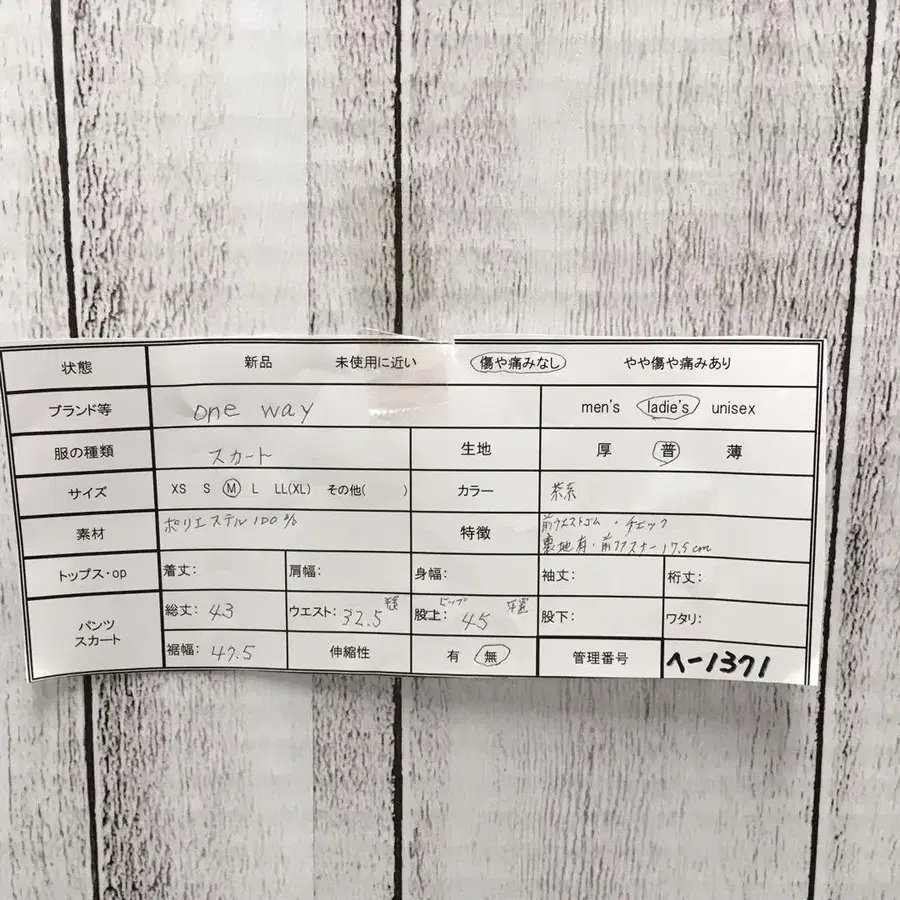 状態 新品 未使用に近い 傷や痛みなし やや傷や痛みあり
ブランド等 one way men's ladie's unisex
服の種類 スカート 生地 厚 普 薄
サイズ XS S M L LL(XL) その他( ) カラー 茶系
素材 ポリエステル100% 特徴 前ウエストゴム・チェック
裏地有・前ファスナー17.5cm
トップス・op 着丈: 肩幅: 身幅: 袖丈: 裄丈:
パンツ スカート 総丈: 43 ウエスト: 32.5 ヒップ 股上: 45 股下: ワタリ:
裾幅: 47.5 伸縮性 有 無 管理番号 ヘ-1371